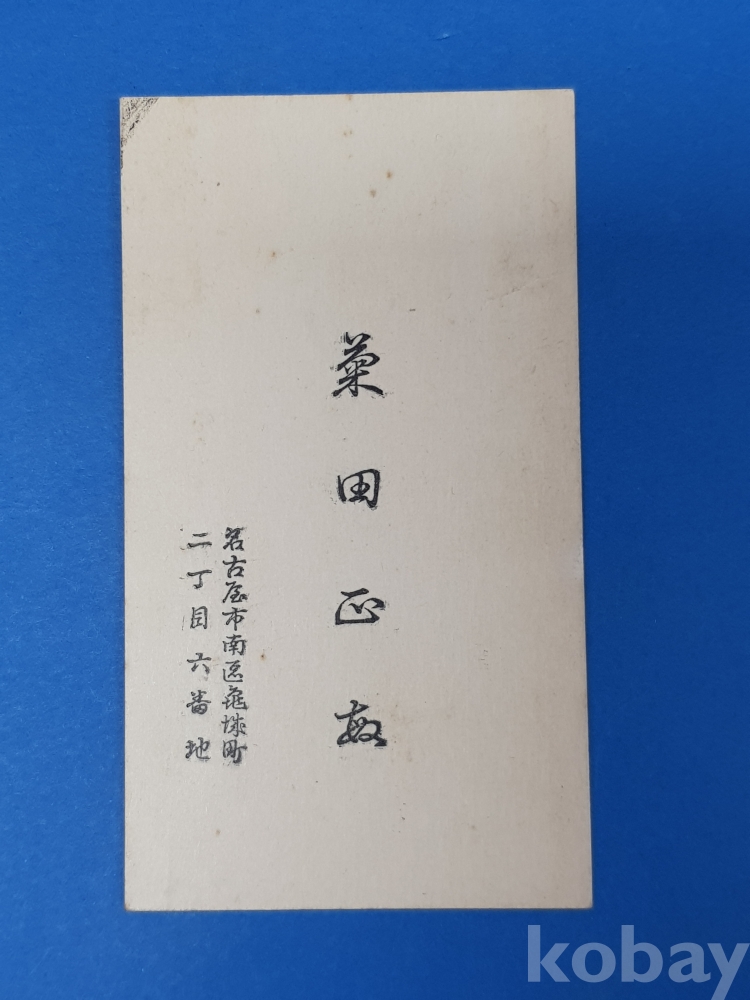 菊田正敏
名古屋市南区亀城町
二丁目六番地
kobay